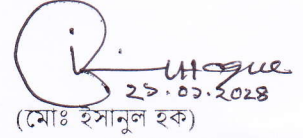 ২১.০১.২০২৪
(মোঃ ইসানুল হক)